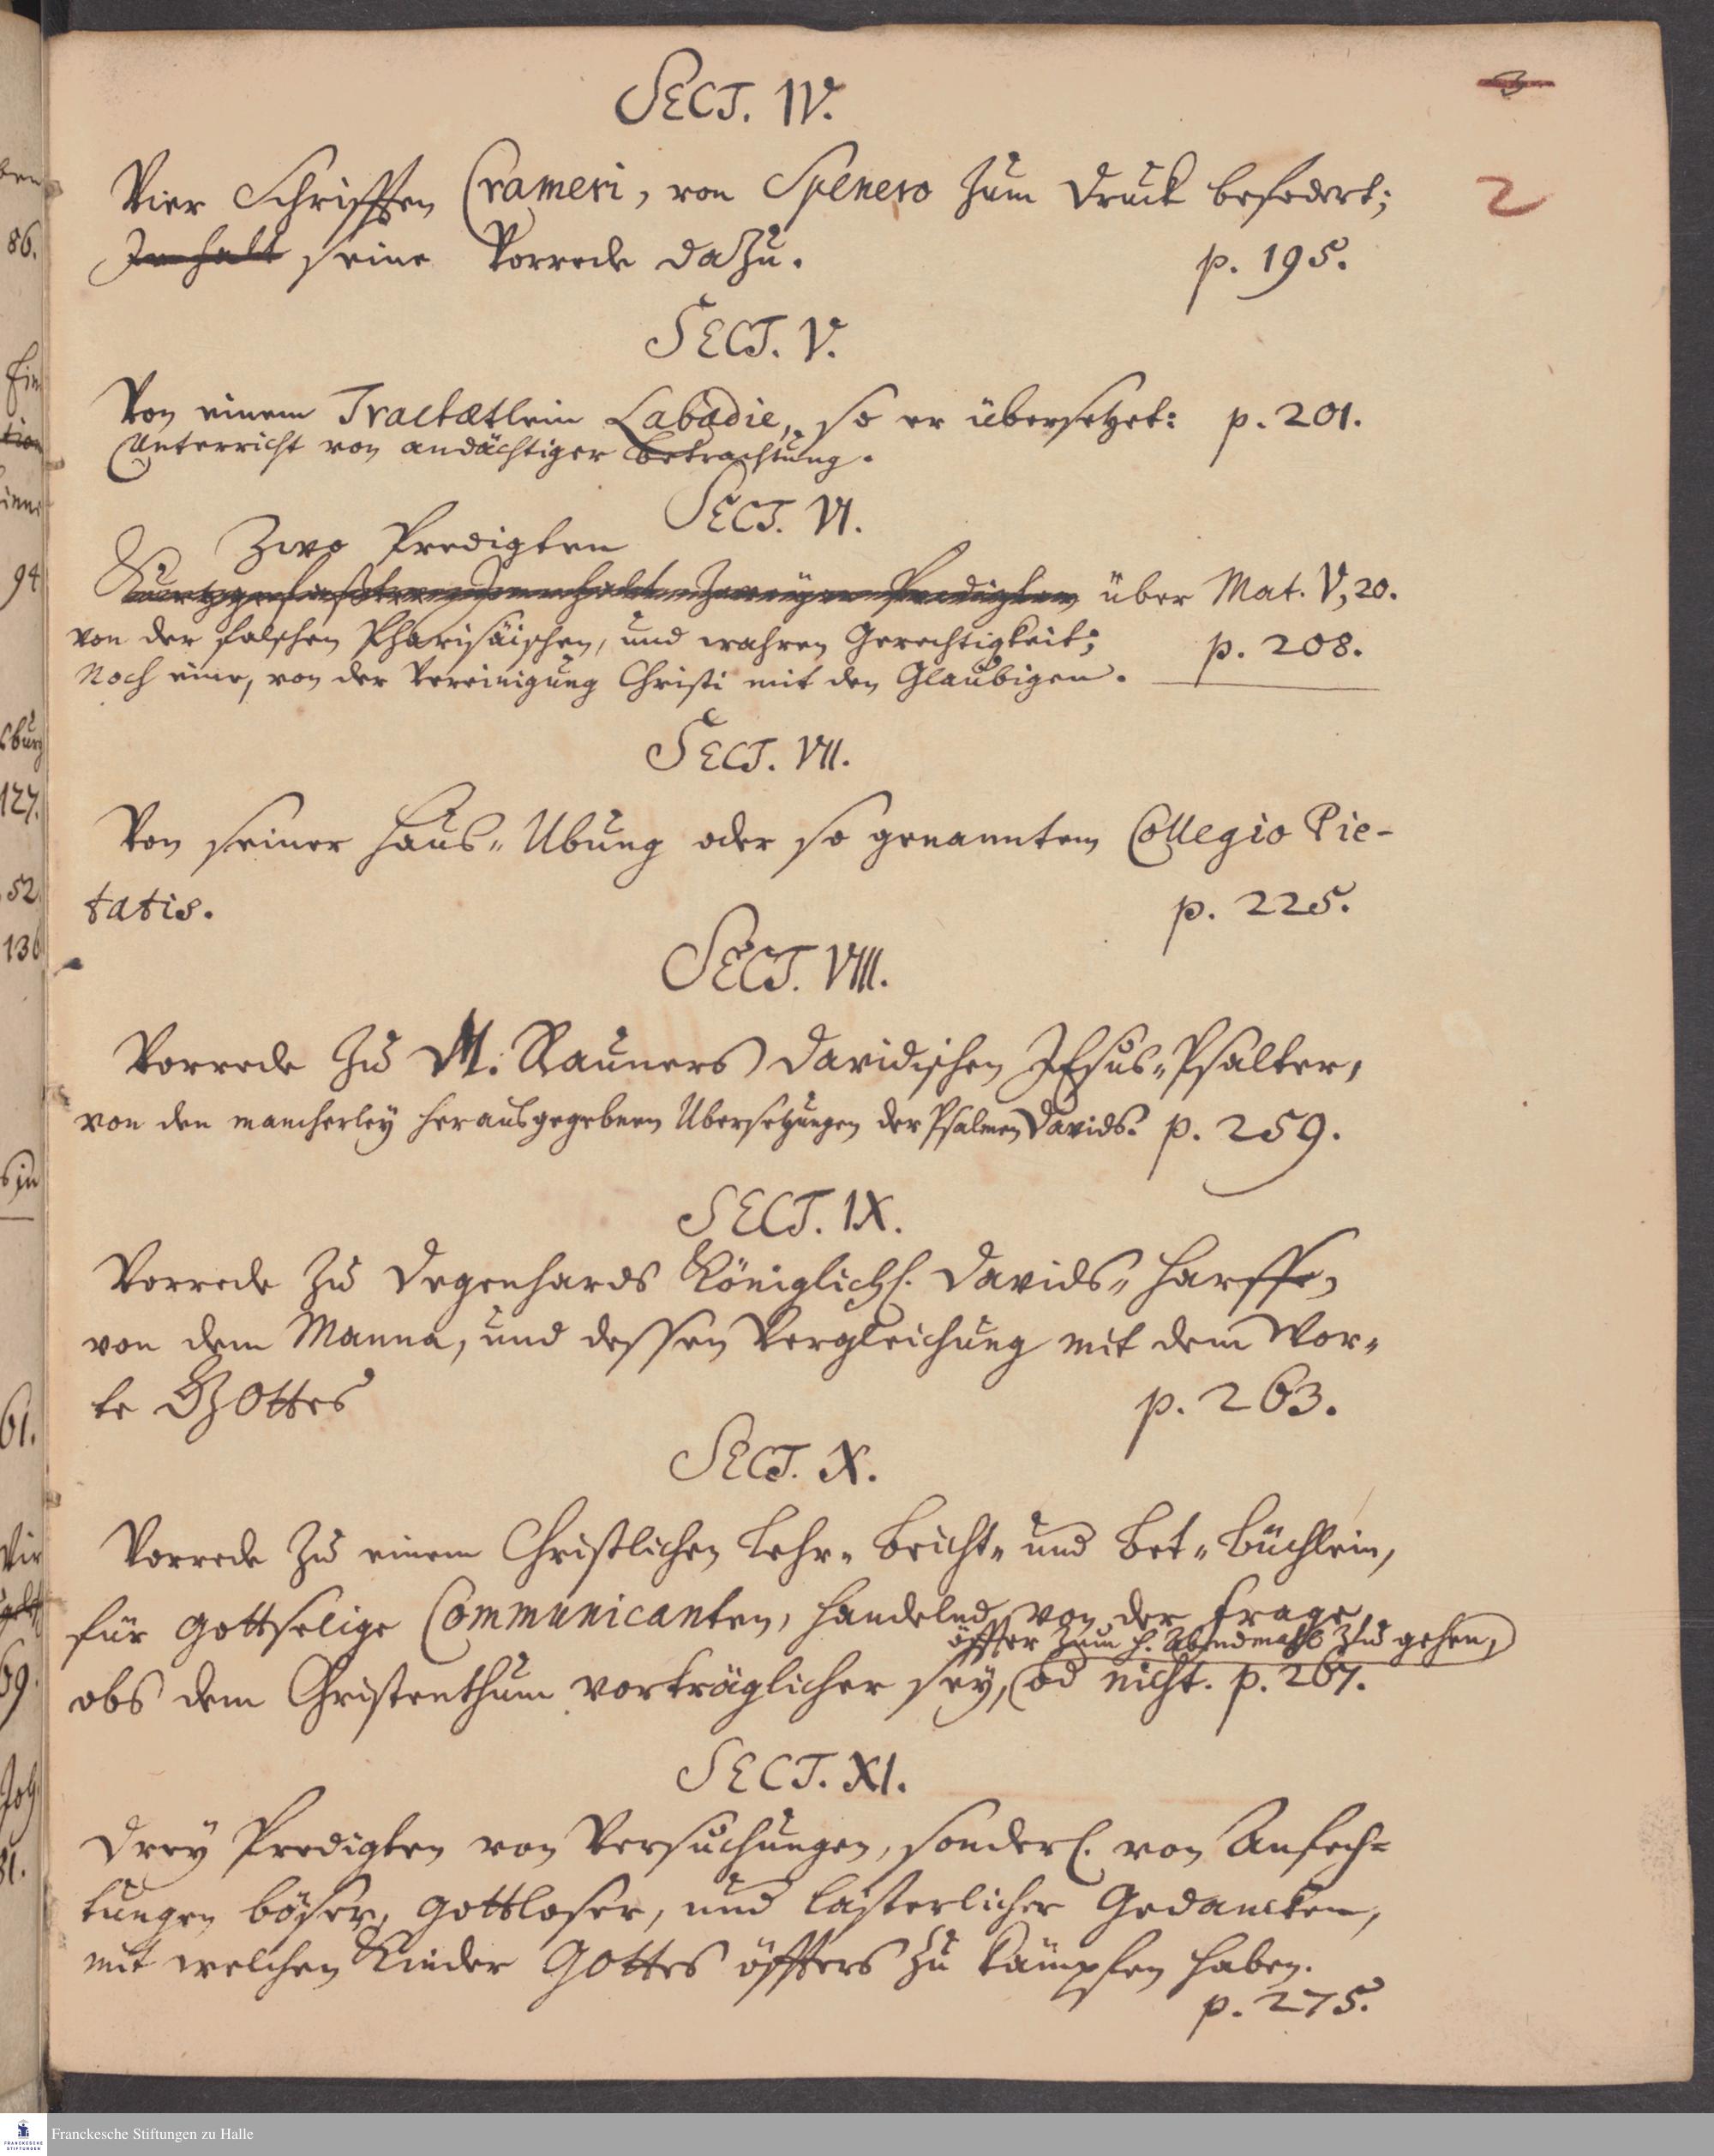 SECT. IV.
2
Vier Schrifften Crameri, von Spenero zum Druck befodert;
Innhalt seine Vorrede dazu. p. 195.
SECT. V.
Von einem Tractætlein Labadie, so er übersetzet: p. 201.
Unterricht von andächtiger Betrachtung.
SECT. VI.
Zwo Predigten
über Mat. V, 20.
von der falschen Pharisäischen, und wahren Gerechtigkeit; p. 208.
Noch eine, von der Vereinigung Christi mit den Glaubigen.
SECT. VII.
Von seiner Haus-Ubung oder so genanntem Collegio Pie-
tatis. p. 225.
SECT. VIII.
Vorrede zu M. Rauners Davidischen JEsus-Psalter,
von den mancherley herausgegebnen Ubersetzungen der Psalmen Davids. p. 259.
SECT. IX.
Vorrede zu Degenhards Königlich. Davids-Harffe,
von dem Manna, und dessen Vergleichung mit dem Wor-
te GOttes p. 263.
SECT. X.
Vorrede zu einem Christlichen Lehr- Beicht- und Bet-Büchlein,
für gottselige Communicanten, handelnd, von der Frage,
öffter zum H. Abendmahl zu gehen,
obs dem Christenthum vorträglicher sey, od nicht. p. 267.
SECT. XI.
Drey Predigten von Versuchungen, sonderl. von Anfech-
tungen böser, gottloser, und lästerlicher Gedancken,
mit welchen Kinder GOttes öffters zu kämpfen haben.
p. 275.
86.
94
127.
52.
136
61.
69.
81.
Franckesche Stiftungen zu Halle